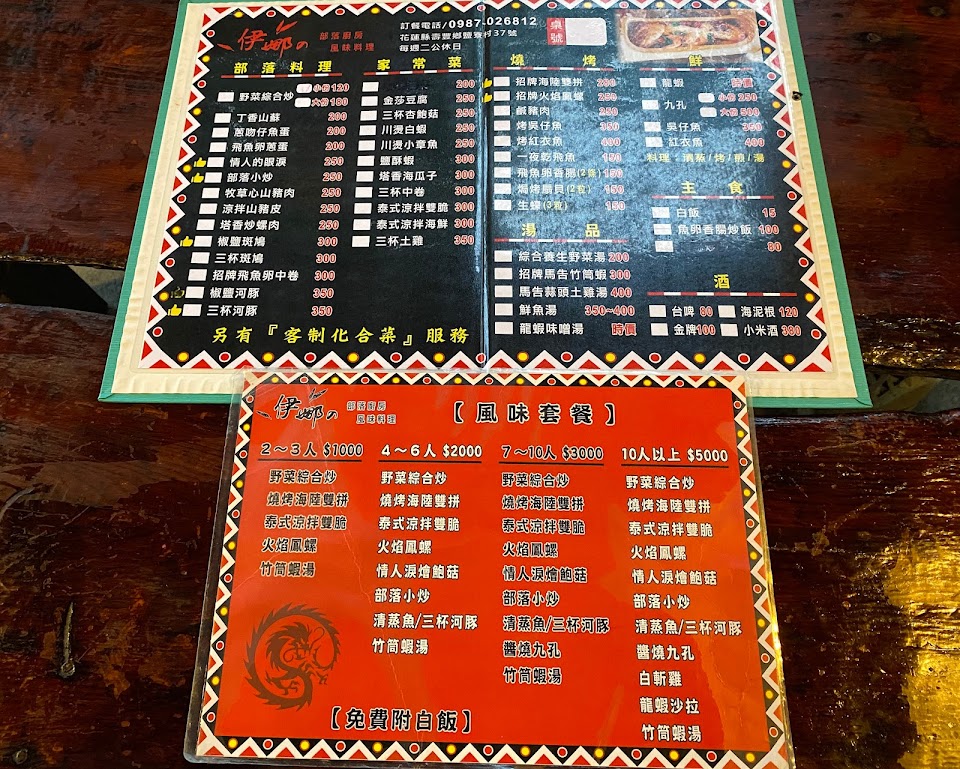 伊娜の 部落廚房 風味料理
訂餐電話/0987-026812
花蓮縣壽豐鄉鹽寮村37號
每週二公休日
桌號
部落料理
野菜綜合炒 小份 120 大份 180
丁香山蘇 200
蔥吻仔魚蛋 200
飛魚卵蔥蛋 200
情人的眼淚 250
部落小炒 250
牧草心山豬肉 250
涼拌山豬皮 250
塔香炒螺肉 250
椒鹽斑鳩 300
三杯斑鳩 300
招牌飛魚卵中卷 300
椒鹽河豚 350
三杯河豚 350
家常菜
200
金莎豆腐 200
三杯杏鮑菇 250
川燙白蝦 250
川燙小章魚 250
鹽酥蝦 300
塔香海瓜子 300
三杯中卷 300
泰式涼拌雙脆 300
泰式涼拌海鮮 300
三杯土雞 350
另有『客制化合菜』服務
燒烤
招牌海陸雙拼 250
招牌火焰鳳螺 250
鹹豬肉 250
烤吳仔魚 350
烤紅衣魚 400
一夜乾飛魚 150
飛魚卵香腸(2條) 150
焗烤扇貝(2粒) 150
生蠔(3粒) 150
湯品
綜合養生野菜湯 200
招牌馬告竹筒蝦 300
馬告蒜頭土雞湯 400
鮮魚湯 350~400
龍蝦味噌湯 時價
鮮
龍蝦 時價
九孔 小份 250 大份 500
吳仔魚 350
紅衣魚 400
料理:清蒸/烤/煎/湯
主食
白飯 15
魚卵香腸炒飯 100
80
酒
台啤 80
海泥根 120
金牌 100
小米酒 380
伊娜の 部落廚房 風味料理
【風味套餐】
2~3人 $1000
野菜綜合炒
燒烤海陸雙拼
泰式涼拌雙脆
火焰鳳螺
竹筒蝦湯
4~6人 $2000
野菜綜合炒
燒烤海陸雙拼
泰式涼拌雙脆
火焰鳳螺
情人淚燴鮑菇
部落小炒
清蒸魚/三杯河豚
竹筒蝦湯
7~10人 $3000
野菜綜合炒
燒烤海陸雙拼
泰式涼拌雙脆
火焰鳳螺
情人淚燴鮑菇
部落小炒
清蒸魚/三杯河豚
醬燒九孔
竹筒蝦湯
10人以上 $5000
野菜綜合炒
燒烤海陸雙拼
泰式涼拌雙脆
火焰鳳螺
情人淚燴鮑菇
部落小炒
清蒸魚/三杯河豚
醬燒九孔
白斬雞
龍蝦沙拉
竹筒蝦湯
【免費附白飯】